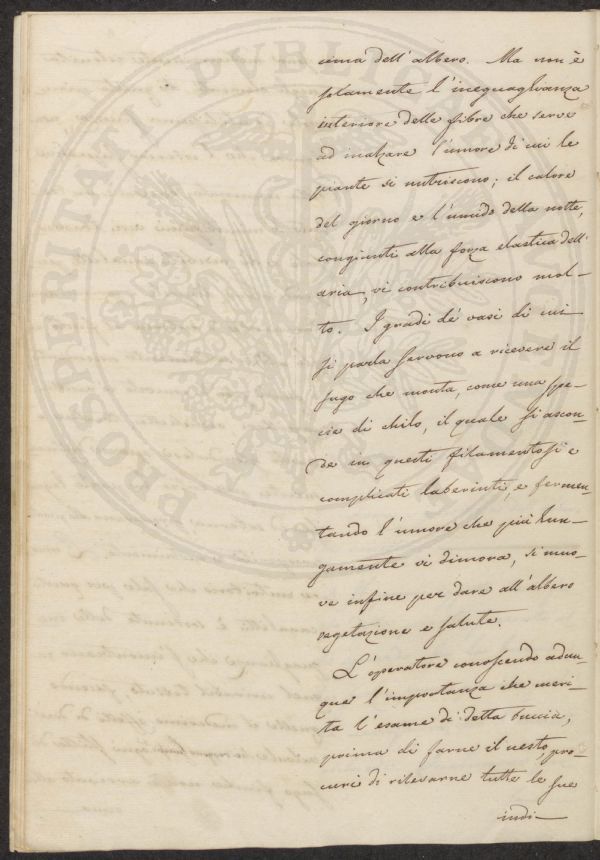 cima dell'albero. Ma non è
solamente l'ineguaglianza
interiore delle fibre che serve
ad inalzare l'umore di cui le
piante si nutriscono; il calore
del giorno e l'umido della notte,
congiunti alla forza elastica dell'
aria, vi contribuiscono mol-
to. I gradi de' vasi di cui
si parla servono a ricevere il
sugo che monta, come una spe-
cie di chilo, il quale si ascon-
de in questi filamentosi e
complicati laberinti, e fermen-
tando l'umore che più lun-
gamente vi dimora, si muo-
ve infine per dare all'albero
vegetazione e salute.
L'operatore conoscendo adun-
que l'importanza che meri-
ta l'esame di detta buccia,
prima di farne il nesto, pro-
curi di rilevarne tutte le sue
indi-
PROSPERITATI PUBLICAE